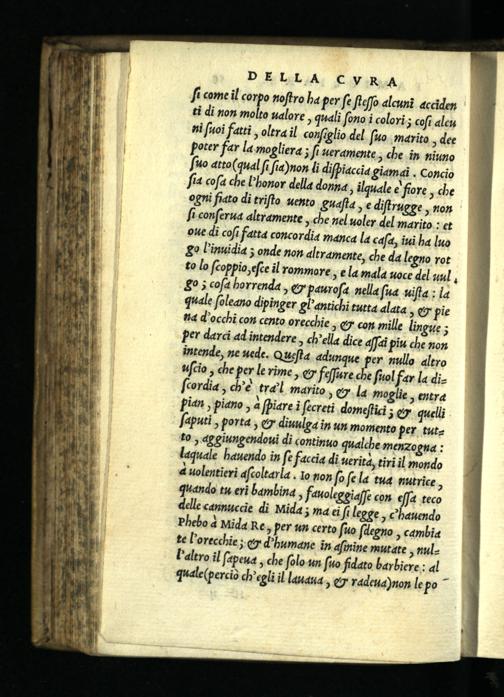 DELLA CVRA
si come il corpo nostro ha per se stesso alcuni acciden
ti di non molto ualore, quali sono i colori; cosi alcu
ni suoi fatti, oltra il consiglio del suo marito, dee
poter far la mogliera; si ueramente, che in niuno
suo atto (qual si sia) non li dispiaccia giamai. Concio
sia cosa che l'honor della donna, ilquale è fiore, che
ogni fiato di tristo uento guasta, e distrugge, non
si conserua altramente, che nel uoler del marito: et
oue di cosi fatta concordia manca la casa, iui ha luo
go l'inuidia; onde non altramente, che da legno rot
to lo scoppio, esce il rommore, e la mala uoce del uul
go; cosa horrenda, & paurosa nella sua uista: la
quale soleano dipinger gl'antichi tutta alata, & pie
na d'occhi con cento orecchie, & con mille lingue;
per darci ad intendere, ch'ella dice assai piu che non
intende, ne uede. Questa adunque per nullo altro
uscio, che per le rime, & fessure che suol far la di-
scordia, ch'è tra'l marito, & la moglie, entra
pian, piano, à spiare i secreti domestici; & quelli
saputi, porta, & diuulga in un momento per tut-
to, aggiungendoui di continuo qualche menzogna:
laquale hauendo in se faccia di uerità, tiri il mondo
à uolentieri ascoltarla. Io non so se la tua nutrice,
quando tu eri bambina, fauoleggiasse con essa teco
delle cannuccie di Mida; ma ei si legge, c'hauendo
Phebo à Mida Re, per un certo suo sdegno, cambia
te l'orecchie; & d'humane in asinine mutate, nul-
l'altro il sapeua, che solo un suo fidato barbiere: al
quale (perciò ch'egli il lauaua, & radeua) non le po-